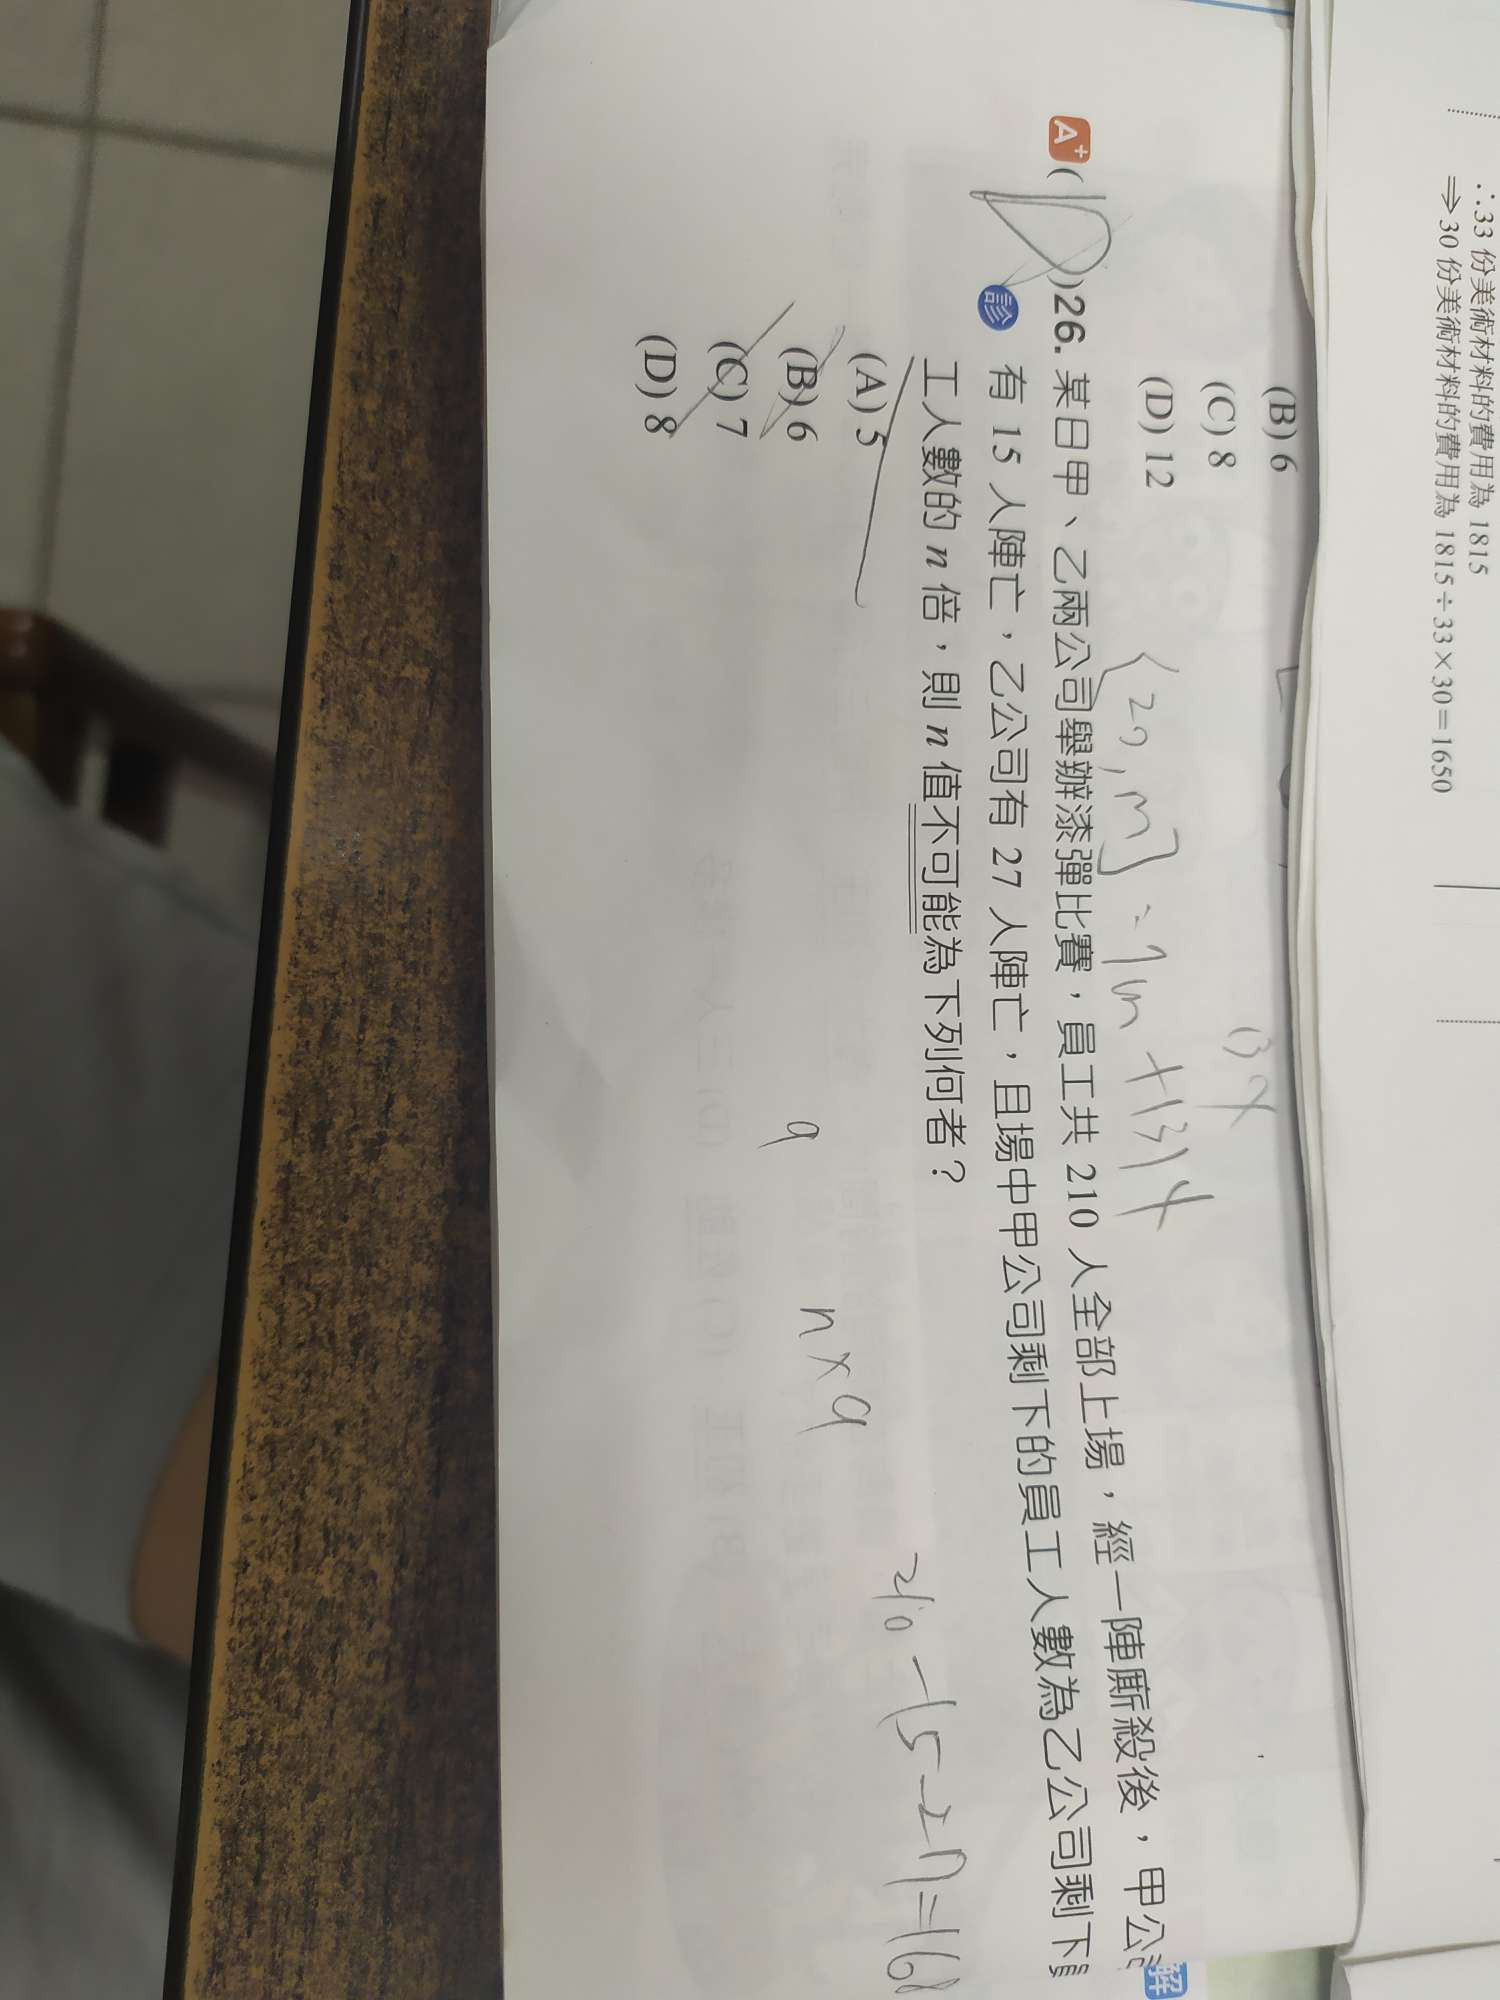 ∴33 份美術材料的費用為 1815
⇒30 份美術材料的費用為 1815÷33×30=1650
(B) 6
(C) 8
(D) 12
A+ ( D )26. 某日甲、乙兩公司舉辦漆彈比賽，員工共 210 人全部上場，經一陣廝殺後，甲公
診 有 15 人陣亡，乙公司有 27 人陣亡，且場中甲公司剩下的員工人數為乙公司剩下
工人數的 n 倍，則 n 值不可能為下列何者？
(A) 5
(B) 6
(C) 7
(D) 8
解
210-15-27=168
n×9
9